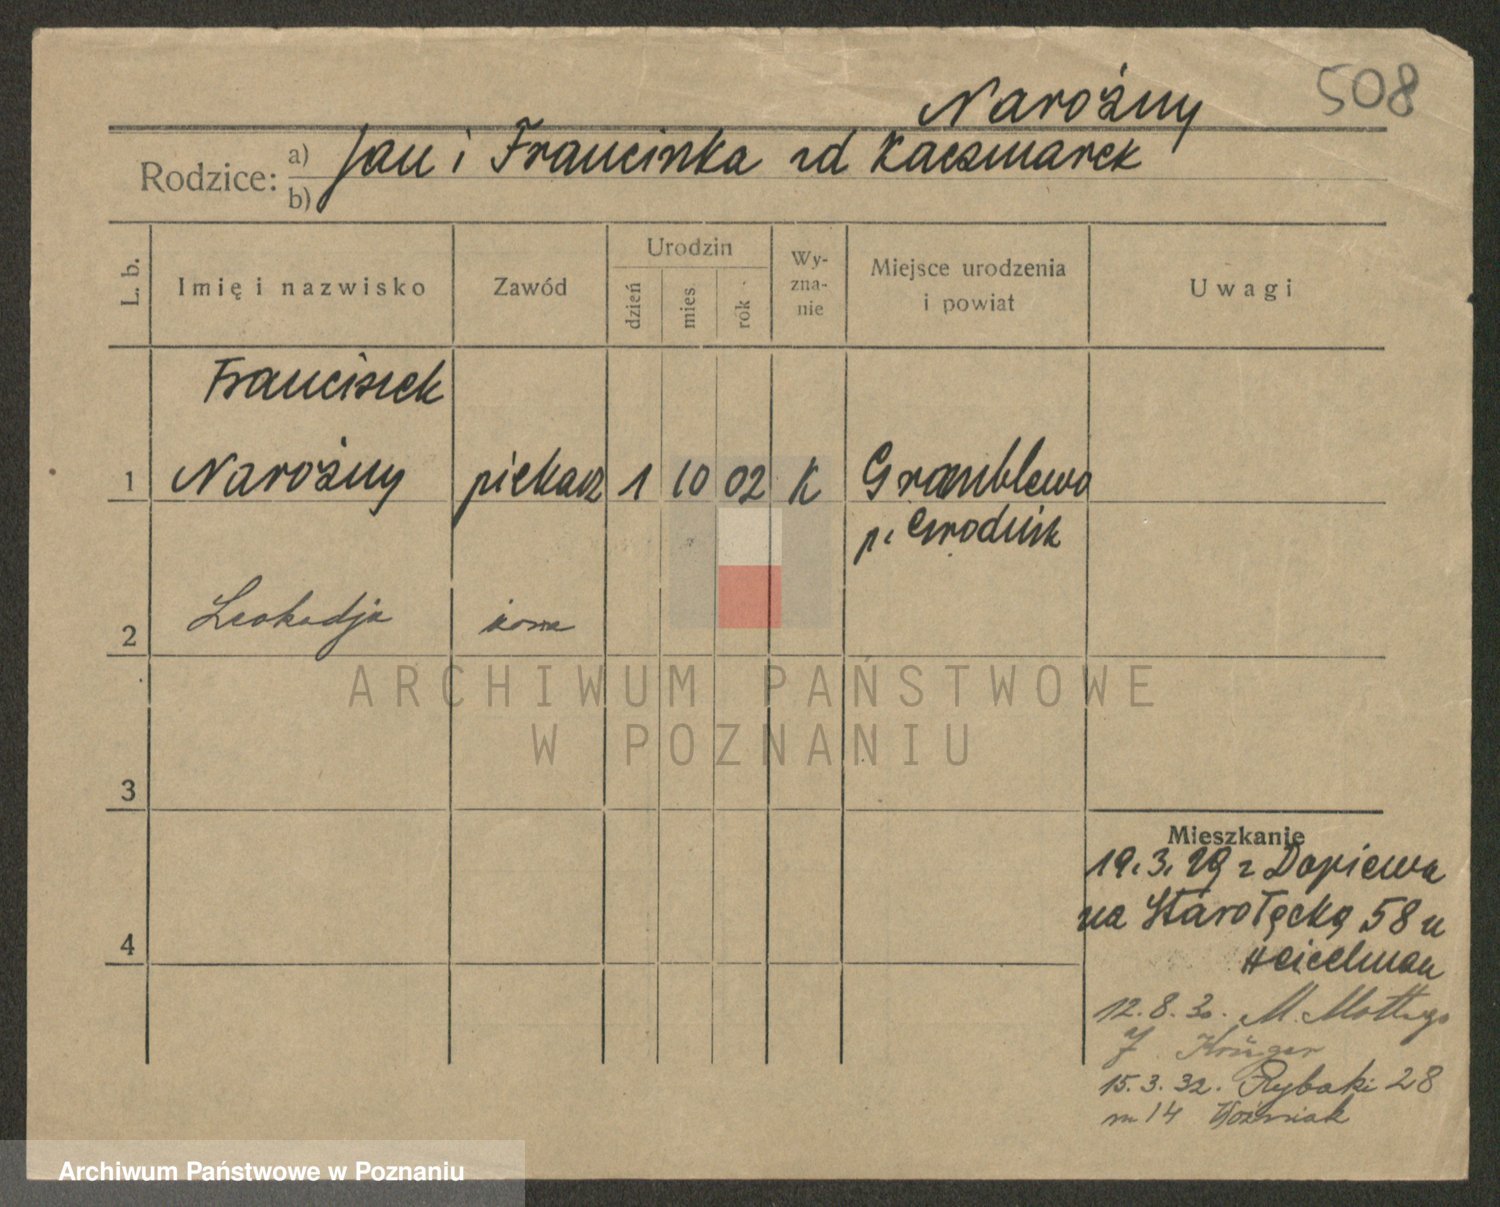 508
Narożny
Rodzice: a) Jan i Franciszka zd Kaczmarek
b)
L. b.
Imię i nazwisko
Zawód
Urodzin
dzień
mies.
rok
Wy-
zna-
nie
Miejsce urodzenia
i powiat
Uwagi
Franciszek
1 Narożny piekarz 1 10 02 K Gramblewo
p. Grodzisk
2 Leokadja żona
3
4
Mieszkanie
19.3.29 z Dopiewa
na Starołęcką 58 u
12.8.30. M. Mottego
7 Krüger
15.3.32. Rybaki 28
m 14 Woźniak
ARCHIWUM PAŃSTWOWE
W POZNANIU
Archiwum Państwowe w Poznaniu